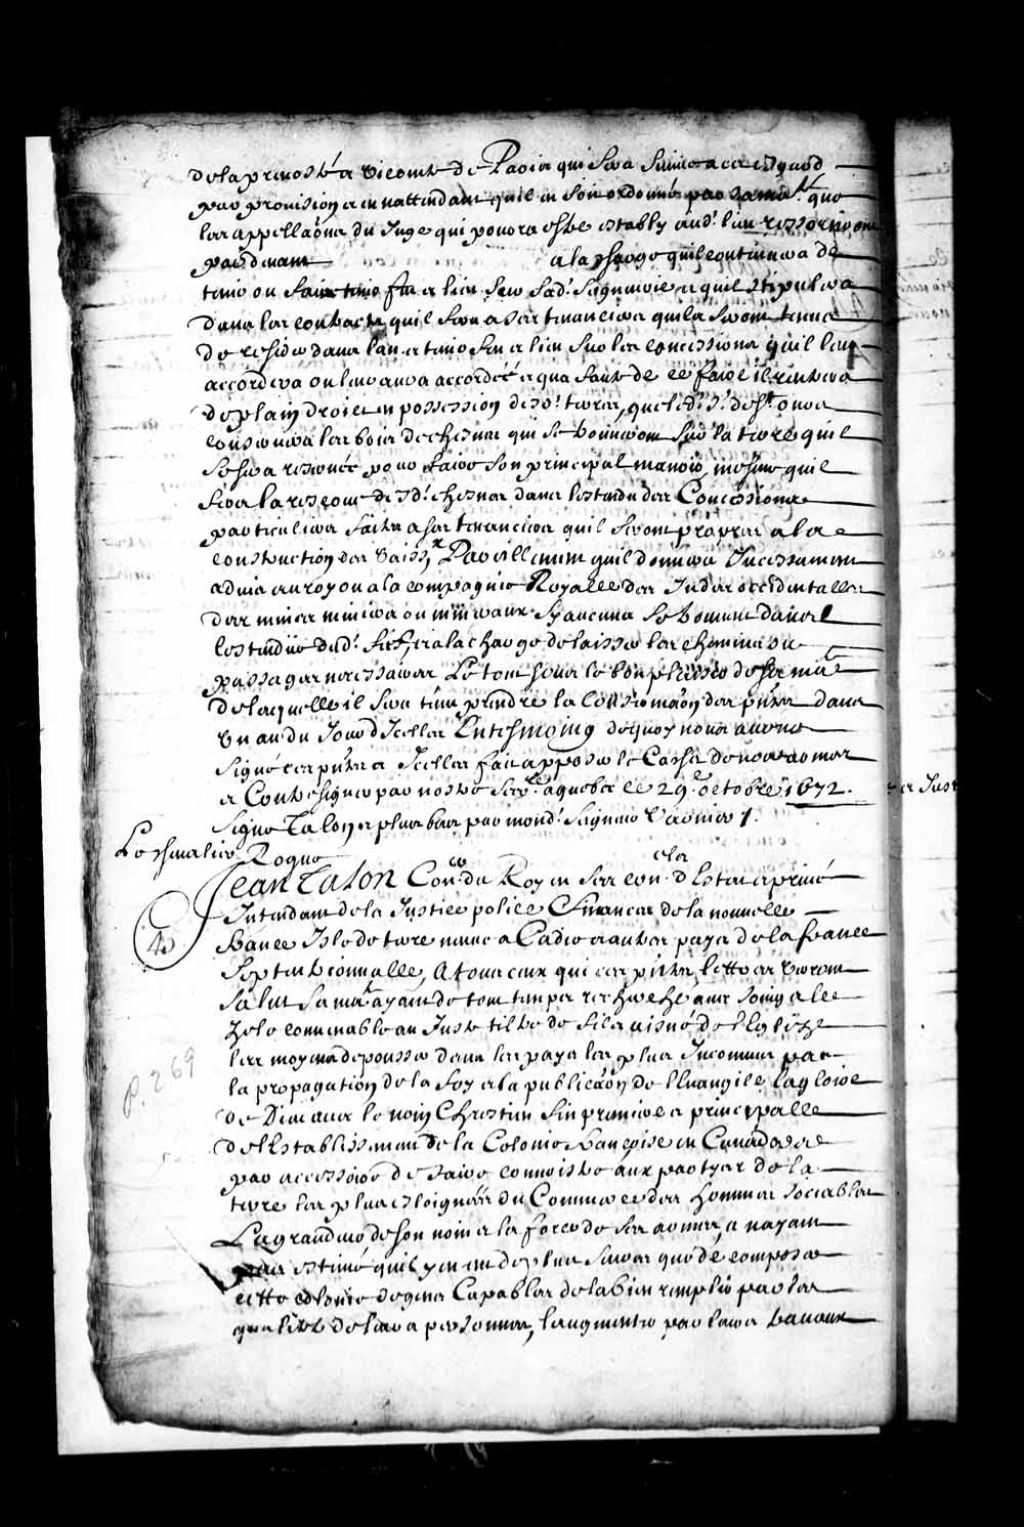 de la prevosté et vicomté de Paris qui sera suivie a cet esgard
par provision et en nattendant quil en soit ordonné par sa ma.té que
les appellaõns du Juge qui pourra estre estably aud.t lieu ressortiront
pardevant a la charge quil continuera de
tenir ou faire tenir feu et lieu sur sad.e Seigneurie et quil stipulera
dans les contracts quil fera a ses tenanciers quils seront tenus
de resider dans lan et tenir feu et lieu sur les concessions quil leur
accordera ou leur aura accordéés et qua faute de ce faire il rentrera
de plain droict en possession desd. terres, que led. S.r des
conservera les bois de chesnes qui se trouveront sur la terre quil
se sera reservée pour faire son principal manoir, mesme quil
fera la reserve desd. chesnes dans lestendue des Concessions
particulieres faites a ses tenanciers qui seront propres a la
construction des vaiss.x Pareillement quil donnera Incessamment
advis au roy ou a la compagnie Royalle des Indes occidentalles
des mines minieres ou mineraux sy aucuns se trouvent dans
lestendüe dud. fief et a la charge de laisser les chemins ou
passages necessaires Le tout soubs le bon plaisir de sa ma.té
de laquelle il sera tenu prendre la confirmaõn des pntes dans
un an du Jour dIcelles En tesmoing de quoy nous avons
signé ces pntes a Icelles fait apposer le Cachet de nos armes
et Contresigner par nostre secr.re a quebec le 29.e octobre 1672.
signé Talon et plus bas par mond. Seigneur Varnier /.
Le chevalier Roque
Jean Talon Con.er du Roy en ses con.els dEstat et privé
Intendant de la Justice police et finances de la nouvelle
france Isle de terre neuve a Cadie et autres pays de la france
septentrionnalle, A tous ceux qui ces pntes lettres verront
salut Sa ma.té ayant de tout temps recherché avec soing et le
zele convenable au Juste tiltre de fils aisné de lEglize
les moyens de pousser dans les pays les plus Inconnus par
la propagation de la foy et la publicaõn de lEvangile la gloire
de Dieu avec le nom Chrestien fin premiere et principalle
de lEstablissement de la Colonie françoise en Canada et
par accessoire de faire connoistre aux partyes de la
terre les plus esloignées du Commerce des hommes sociables
La grandeur de son nom et la force de ses armes, et nayant
pas estimé quil y en eut de plus seures que de composer
cette colonie de gens Capables de la bien remplir par les
qualitez de leurs personnes, laugmenter par leurs travaux
40
P. 269